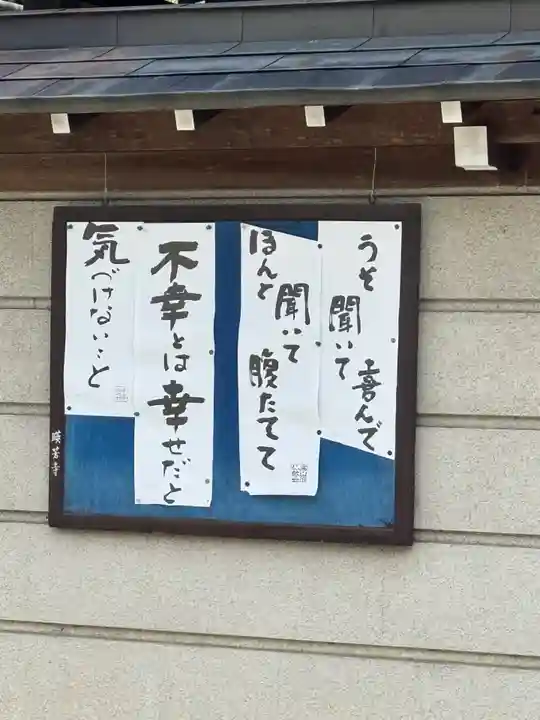 うそ聞いて喜んで
ほんと聞いて腹たてて
不幸とは幸せだと
気づけないこと
暎芳寺